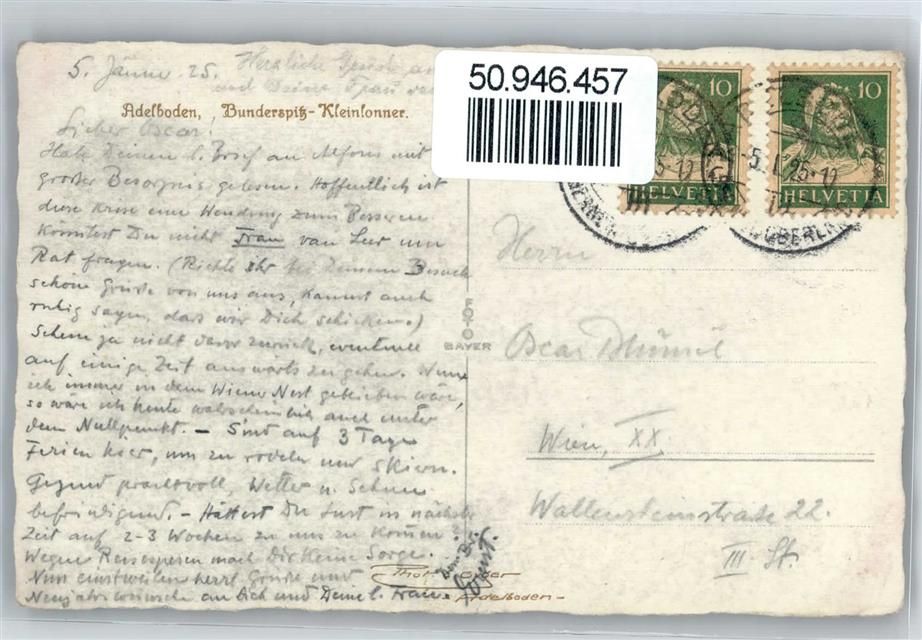 50.946.457
5. Jänner 25. Herzliche Grüße an
und Deine Frau von
Adelboden, Bunderspitz-Kleinlonner.
Lieber Oscar!
Habe Deinen l. Brief an Alfons mit
großer Besorgnis gelesen. Hoffentlich ist
diese Krise eine Wendung zum Besseren
Könntest Du nicht Frau van Leer um
Rat fragen. (Richte ihr bei Deinem Besuch
schöne Grüße von uns aus, kannst auch
ruhig sagen, dass wir Dich schicken.)
Scheue ja nicht davor zurück, eventuell
auf einige Zeit auswärts zu gehen. Wenn
ich immer in dem Wiener Nest geblieben wäre,
so wäre ich heute wahrscheinlich auch unter
dem Nullpunkt. – Sind auf 3 Tage
Ferien hier, um zu rodeln und Skiern.
Gegend prachtvoll, Wetter u. Schnee
befriedigend. – Hättest Du Lust in nächster
Zeit auf 2-3 Wochen zu uns zu kommen?
Wegen Reisespesen mach Dir keine Sorge.
Nun einstweilen herzl. Grüße und
Neujahrswünsche an Dich und Deine l. Frau.
Dein Br.
10
HELVETIA
10
HELVETIA
5. I. 25.
FOTO
BAYER
Herrn
Oscar
Wien, XX
Wallensteinstraße 22.
III. St.
Adelboden